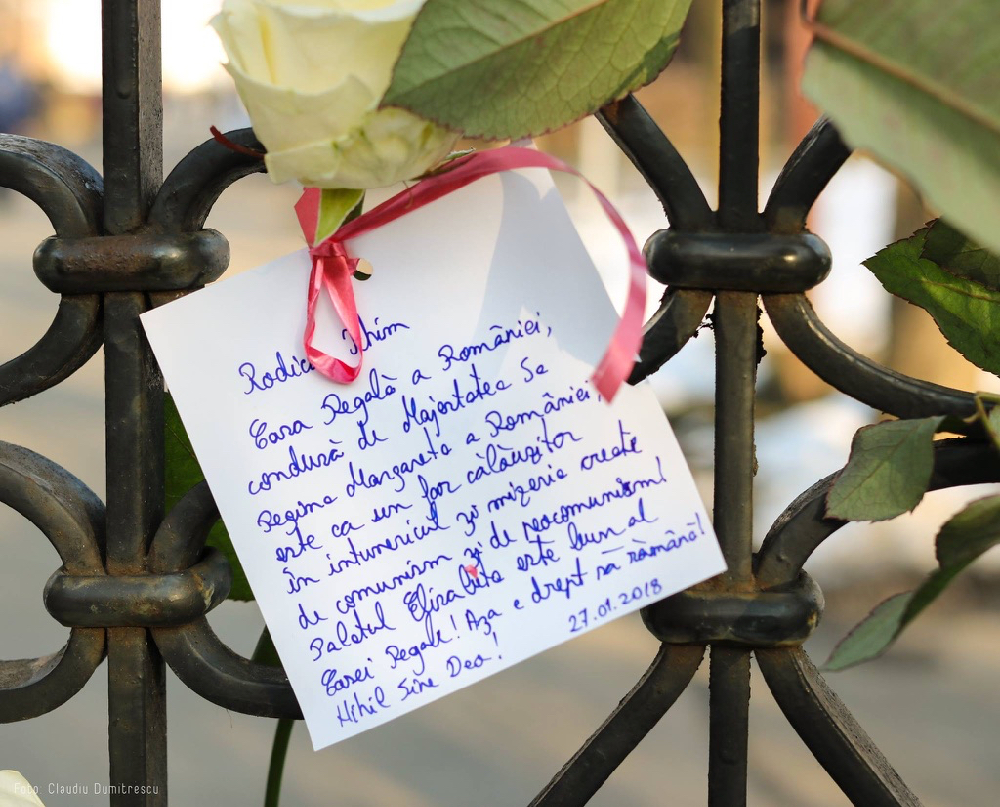 Rodica
Casa Regală a României,
condusă de Majestatea Sa
Regina Margareta a României,
este ca un far călăuzitor
în intunericul și mizeria create
de comunism și de neocomunism!
Palatul Elisabeta este bun al
Casei Regale! Așa e drept să rămână!
Nihil Sine Deo!
27.01.2018
Foto: Claudiu Dumitrescu